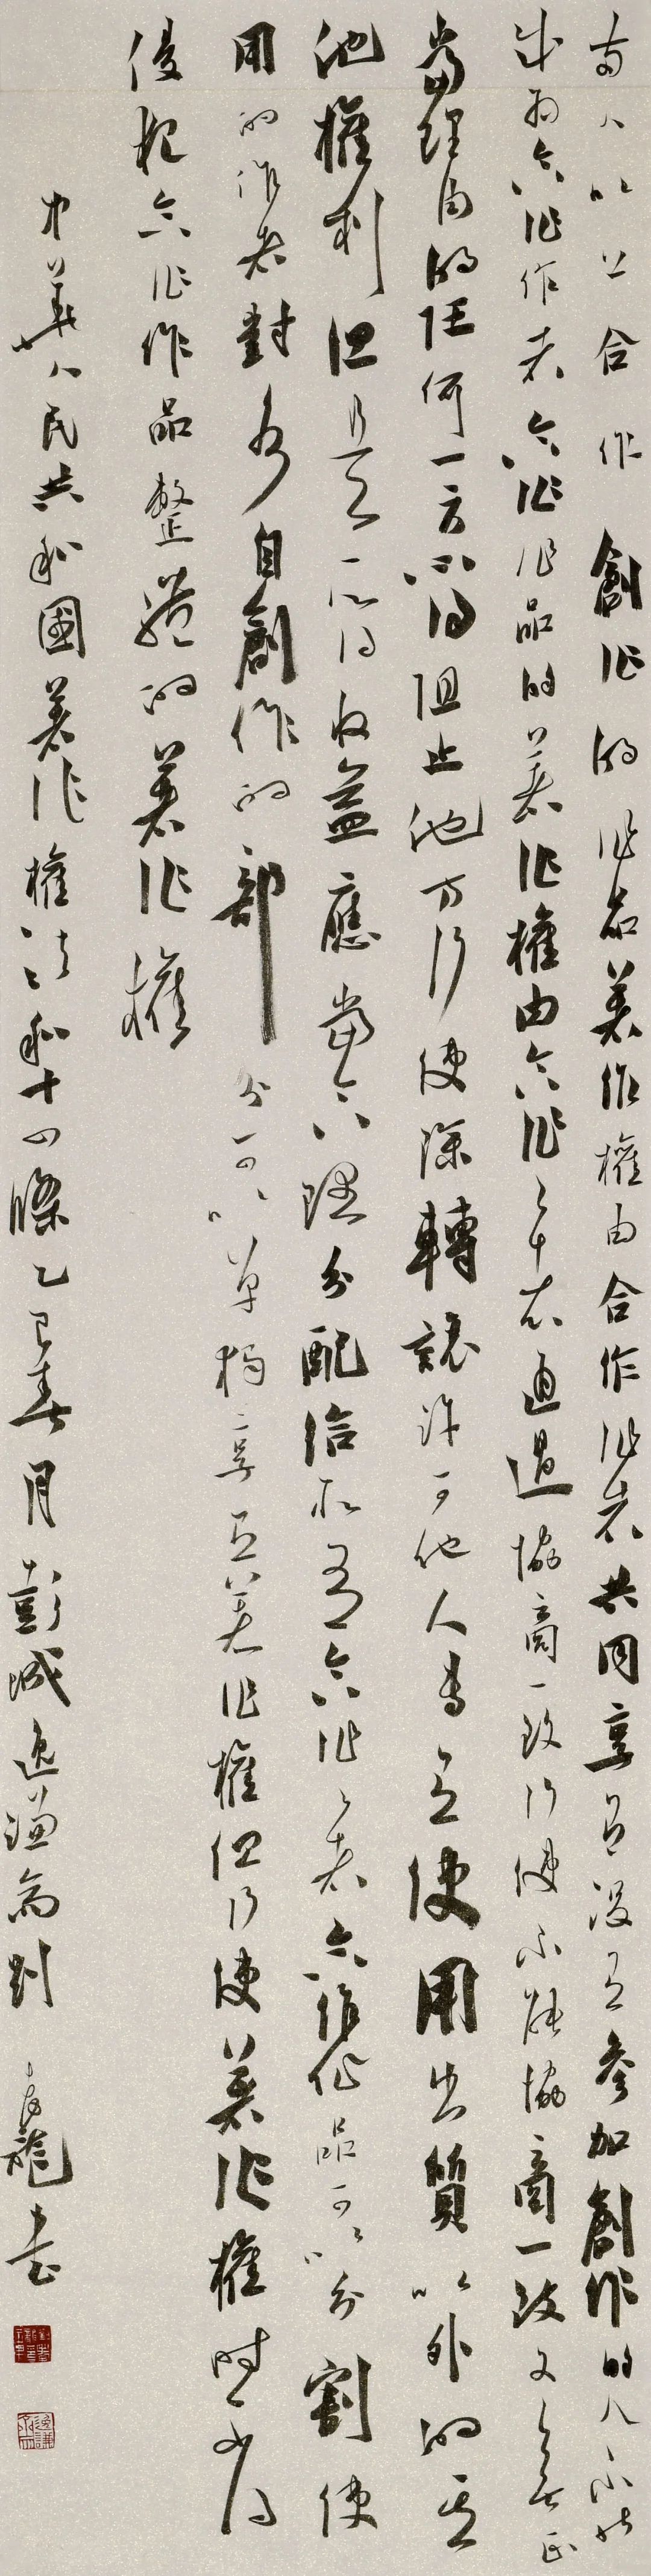 兩人以上合作創作的作品著作權由合作作者共同享有沒有參加創作的人不能
成為合作作者合作作品的著作權由合作作者通過協商一致行使不能協商一致又無正
當理由的任何一方不得阻止他方行使除轉讓許可他人專有使用出質以外的其
他權利但是所得收益應當合理分配給所有合作作者合作作品可以分割使
用的作者對各自創作的部分可以單獨享有著作權但行使著作權時不得
侵犯合作作品整體的著作權
中華人民共和國著作權法第十四條乙巳春月彭城逸謙齋劉龍書